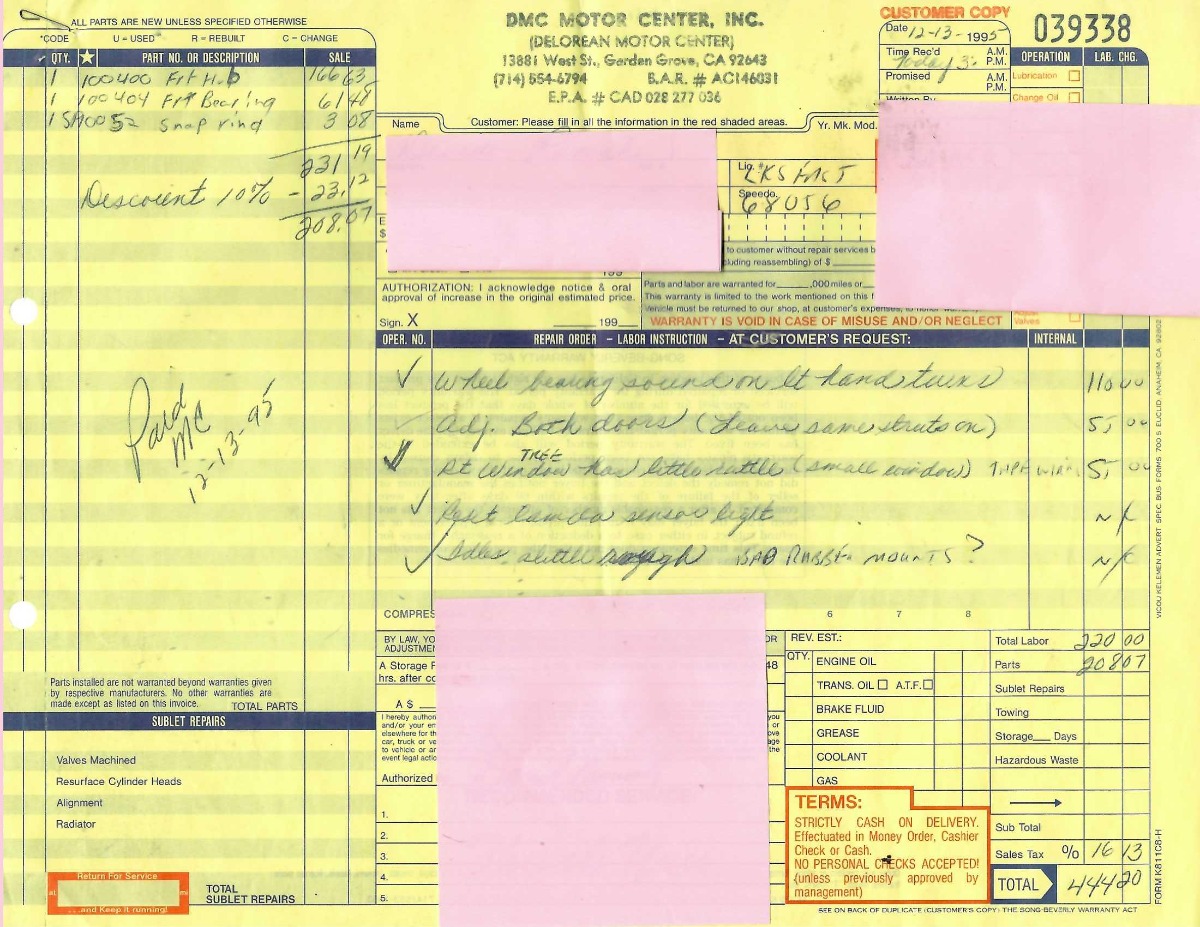 ALL PARTS ARE NEW UNLESS SPECIFIED OTHERWISE
*CODE U = USED R = REBUILT C = CHANGE
QTY. PART NO. OR DESCRIPTION SALE
1 100400 Frt Hub 166 63
1 100404 Frt Bearing 61 48
1 SA0052 Snap ring 3 08
231 19
Discount 10% - 23.12
208.07
Paid
MC
12-13-95
Parts installed are not warranted beyond warranties given
by respective manufacturers. No other warranties are
made except as listed on this invoice.
TOTAL PARTS
SUBLET REPAIRS
Valves Machined
Resurface Cylinder Heads
Alignment
Radiator
Return For Service
at
ms
...and Keep it running!
TOTAL
SUBLET REPAIRS
DMC MOTOR CENTER, INC.
(DELOREAN MOTOR CENTER)
13881 West St., Garden Grove, CA 92643
(714) 554-6794 B.A.R. # AC146031
E.P.A. # CAD 028 277 036
CUSTOMER COPY
039338
Date 12-13-1995
Time Rec'd A.M.
P.M.
Today 3:
Promised A.M.
P.M.
Written By
OPERATION LAB. CHG.
Lubrication
Change Oil
Name
Customer: Please fill in all the information in the red shaded areas.
Yr. Mk. Mod.
Lic. #
LKS FAST
Speedo.
68056
E
$
to customer without repair services b
cluding reassembling) of $
199
AUTHORIZATION: I acknowledge notice & oral
approval of increase in the original estimated price.
Sign. X 199
Parts and labor are warranted for ,000 miles or
This warranty is limited to the work mentioned on this
Vehicle must be returned to our shop, at customer's expenses, to honor
WARRANTY IS VOID IN CASE OF MISUSE AND/OR NEGLECT
Valves
OPER. NO. REPAIR ORDER - LABOR INSTRUCTION - AT CUSTOMER'S REQUEST: INTERNAL
Wheel bearing sound on lt hand turns 110 00
Adj. Both doors (Leave same struts on) 55 00
TREE
Rt Window has little rattle (small window) 55 00
Reset lamda sensor light N/C
Idles alittle rough BAD RUBBER MOUNTS? N/C
COMPRES
6 7 8
BY LAW, YO
ADJUSTMEN
OR
A Storage F
48
hrs. after co
A $
I hereby author
and/or your em
elsewhere for th
car, truck or ve
to vehicle or an
event legal actio
you
or
ove
age
the
Authorized
1.
2.
3.
4.
5.
REV. EST.:
QTY.
ENGINE OIL
TRANS. OIL A.T.F.
BRAKE FLUID
GREASE
COOLANT
GAS
TERMS:
STRICTLY CASH ON DELIVERY.
Effectuated in Money Order, Cashier
Check or Cash.
NO PERSONAL CHECKS ACCEPTED!
(unless previously approved by
management)
Total Labor 220 00
Parts 208 07
Sublet Repairs
Towing
Storage Days
Hazardous Waste
Sub Total
Sales Tax % 16 13
TOTAL 444 20
SEE ON BACK OF DUPLICATE (CUSTOMER'S COPY) THE SONG-BEVERLY WARRANTY ACT
VICOU KELEMEN ADVERT SPEC BUS FORMS 700 S EUCLID ANAHEIM, CA 92802
FORM K811C8-H